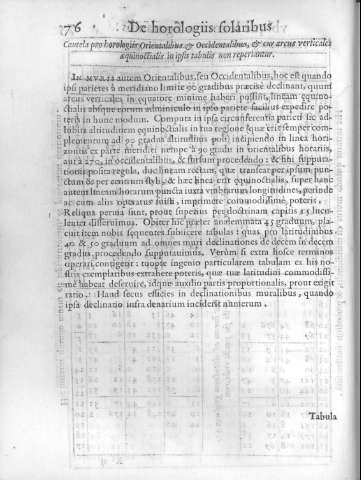 76 De horologiis solaribus
Cautela pro horologiis Orientalibus & Occidentalibus, & cur arcus verticales
æquinoctialis in ipsis tabulis non reperiantur.
IN MVRIS autem Orientalibus, seu Occidentalibus, hoc est quando
ipsi parietes à meridiano limite 90 gradibus præcisè declinant, quum
arcus verticales, in æquatore minimè haberi possint, lineam æquino-
ctialis absque eorum adminiculo in ipso pariete facilius expedire po-
teris in hunc modum. Computa in ipsa circumferentia parieti sic ad-
hibita altitudinem equinoctialis in tua regione (quæ erit semper com-
plementum ad 90 gradus altitudinis poli) incipiendo in linea hori-
zontis ex parte meridiei nempe à 90 gradu in orientalibus horariis,
aut à 270, in occidentalibus, & sursum procedendo: & fini supputa-
tionis polita regula, duc lineam rectam, quæ transeat per ipsum pun-
ctum & per centrum styli, & hæc linea erit equinoctialis, super hanc
autem lineam horarum puncta iuxta vmbrarum longitudines, perinde
ac cum aliis operatus fuisti, imprimere commodissimè, poteris.
Reliqua penitus sunt, prout superius per doctrinam capitis 25 lucu-
lenter disseruimus. Obiter hîc præter analemmata 45 graduum, pla-
cuit item nobis sequentes subiicere tabulas: quas pro latitudinibus
40 & 50 graduum ad omnes muri declinationes de decem in decem
gradus, procedendo supputauimus. Verùm si extra hosce terminos
operari contigerit: tuopte ingenio particularem tabulam ex his no-
stris exemplaribus extrahere poteris, quæ tuæ latitudini commodissi-
mè habeat deseruire, idque auxilio partis proportionalis, prout exigit
ratio. Haud secus efficies in declinationibus muralibus, quando
ipsa declinatio infra denarium inciderit numerum.
Tabula